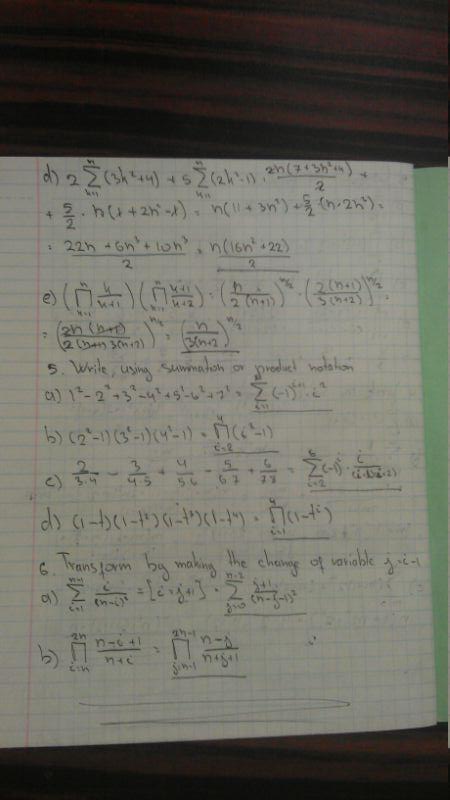 d) 2 ∑_{k=1}^{n} (3k²+4) + 5 ∑_{k=1}^{n} (2k²-1) = 2n(7+3n²+4)/2 +
+ 5/2 · n(1+2n²-1) = n(11+3n²) + 5/2 (n·2n²) =
= (22n+6n³+10n³)/2 = n(16n²+22)/2
e) (∏_{k=1}^{n} k/(k+1)) (∏_{k=1}^{n} (k+1)/(k+2)) = (n/2(n+1))^{n/2} · (2(n+1)/3(n+2))^{n/2} =
= (2n(n+1)/2(n+1)3(n+2))^{n/2} = (n/3(n+2))^{n/2}
5. Write, using summation or product notation
a) 1²-2²+3²-4²+5²-6²+7² = ∑_{i=1}^{7} (-1)^{i+1} · i²
b) (2²-1)(3²-1)(4²-1) = ∏_{i=2}^{4} (i²-1)
c) 2/3·4 - 3/4·5 + 4/5·6 - 5/6·7 + 6/7·8 = ∑_{i=2}^{6} (-1)^i · i/(i+1)(i+2)
d) (1-t)(1-t²)(1-t³)(1-t⁴) = ∏_{i=1}^{4} (1-t^i)
6. Transform by making the change of variable j=i-1
a) ∑_{i=1}^{n-1} i/(n-i)² = [i=j+1] = ∑_{j=0}^{n-2} (j+1)/(n-j-1)²
b) ∏_{i=n}^{2n} (n-i+1)/(n+i) = ∏_{j=n-1}^{2n-1} (n-j)/(n+j+1)